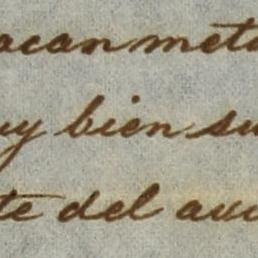 acan met
uy bien su
te del au